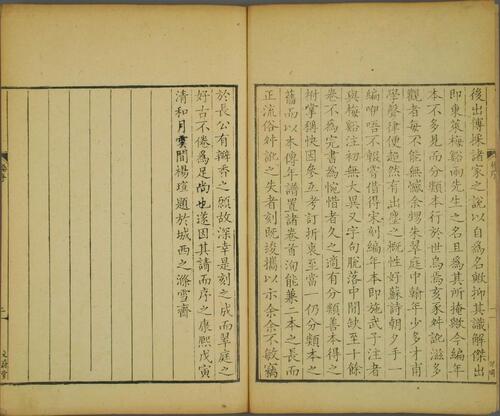 後出博採諸家之說以自為名歟抑其識解傑出
即東萊梅谿兩先生之名且為其所掩歟今編年
本不多見而分類本行於世烏焉亥豕舛訛滋多
觀者每不能無憾余甥朱翠庭中翰年少多才甫
學聲律便超然有出塵之概性好蘇詩朝夕手一
編咿唔不輟嘗借得宋刻編年本即施武子注者
與梅谿注初無大異又字句脫落中間缺至十餘
卷不為完書為惋惜者久之適有分類善本得之
拊掌稱快因參互考訂折衷至當一仍分類本之
舊而以本傳年譜置諸卷首洵能兼二本之長而
正流俗舛訛之失者刻既竣攜以示余余不敏竊
於長公有瓣香之願故深幸是刻之成而翠庭之
好古不倦為足尚也遂因其請而序之康熙戊寅
清和月雲間楊瑄題於城西之滌雪齋
文蔚堂